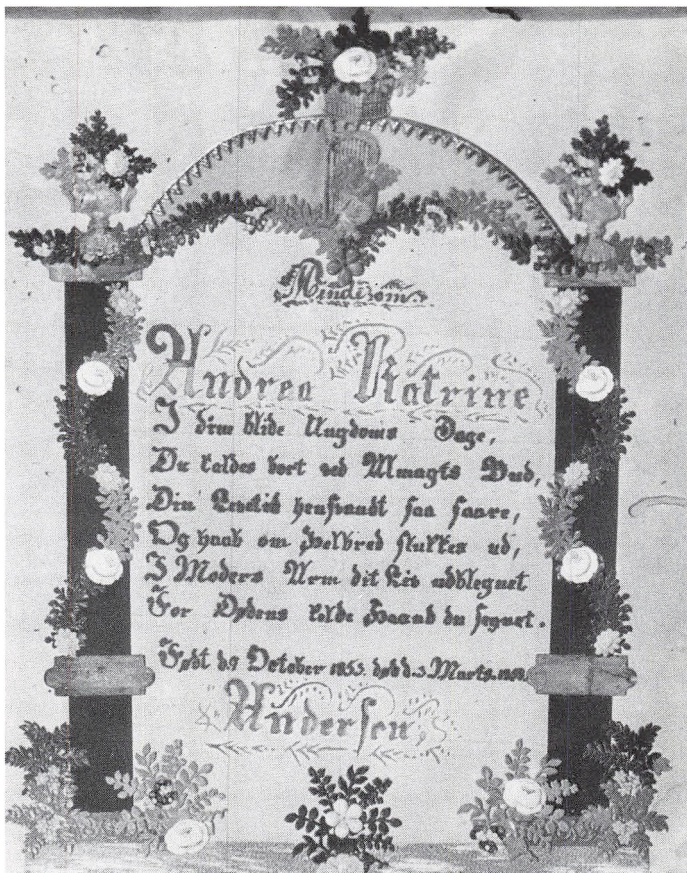 Minde om
Andrea Katrine
I dine blide Ungdoms Dage,
Du kaldes bort ved Almagts Bud,
Din hensvandt saa saare,
Og haab om Helbred slukkes ud,
I Moders Arm dit Liv udblegnet
For Dødens kolde Haand du segnet.
Født d. 9 October 1853. død d. 3 Marts
Andersen